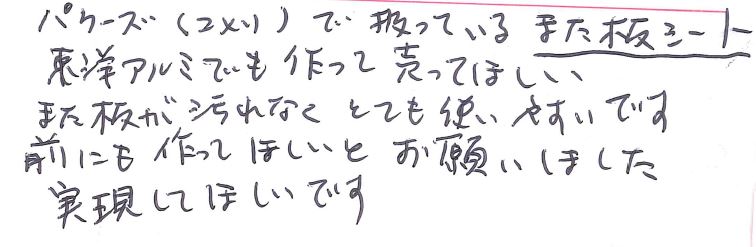 パワーズ(コメリ)で扱っているまた板シート
東洋アルミでも作って売ってほしい
また板が汚れなくとても使いやすいです
前にも作ってほしいとお願いしました
実現してほしいです